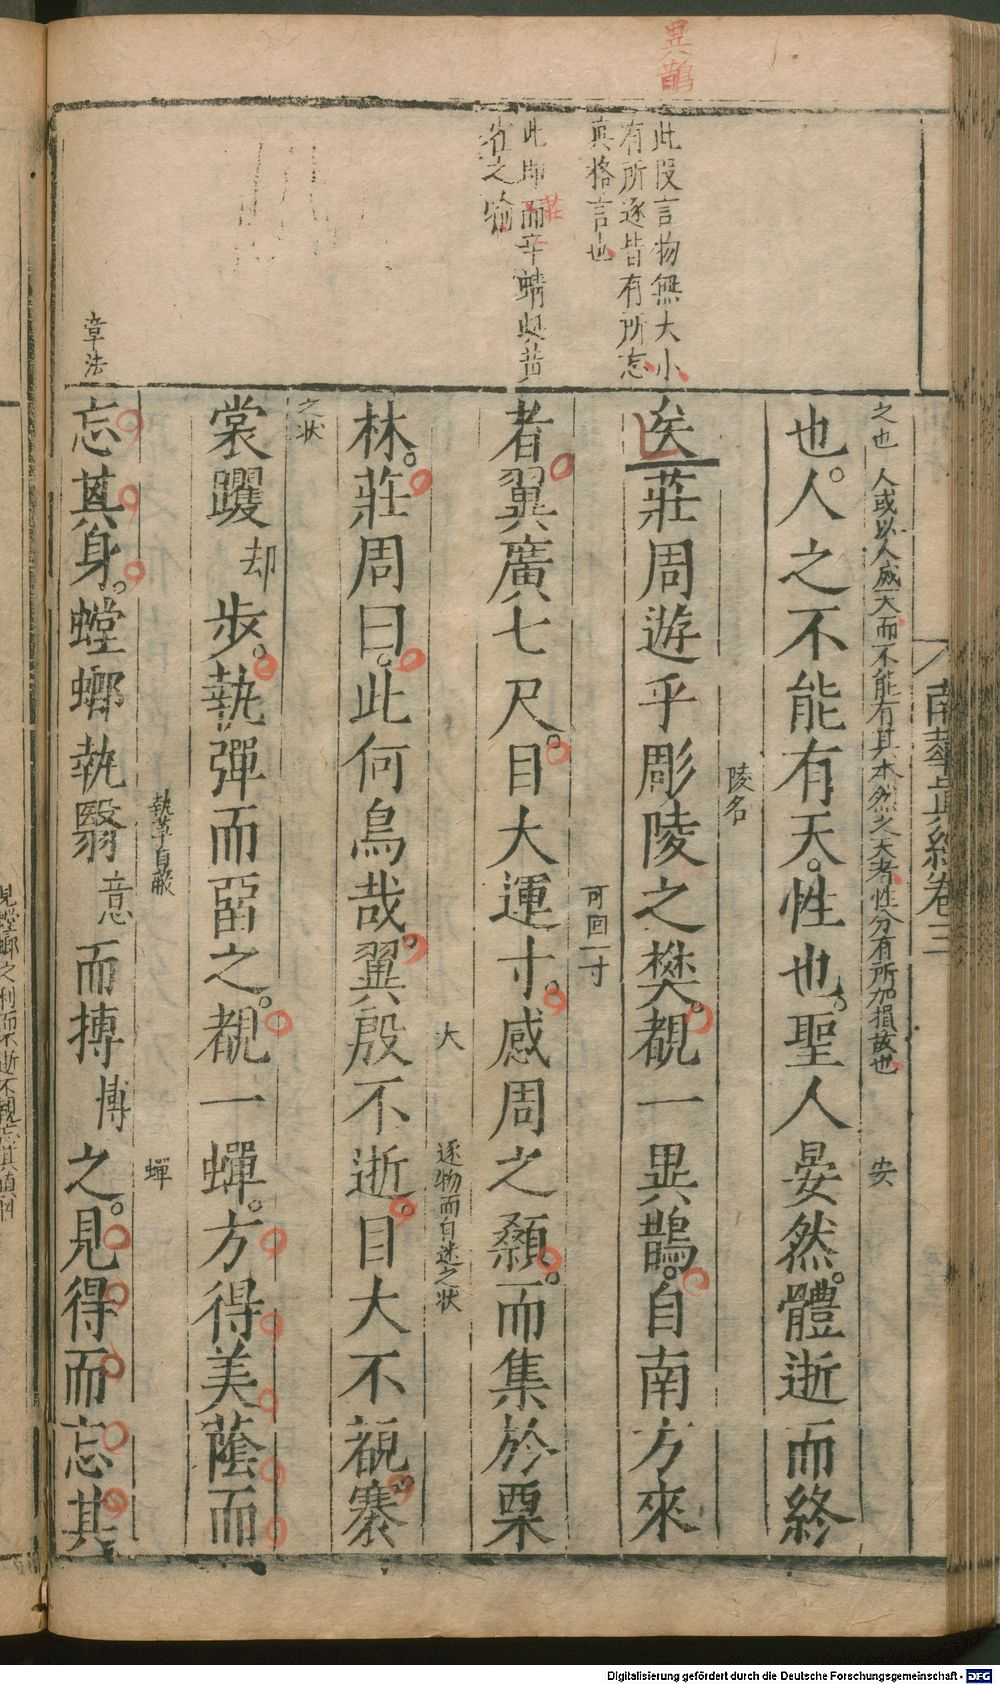 異鵲
此叚言物無大小
有所逐皆有所忘
真格言也
莊
此即而辛蜻與黄
雀之喻
章法
南華真經卷三
之也 人或以人滅天而不能有其本然之天者性分有所加損故也
安
也。人之不能有天。性也。聖人晏然。體逝而終
陵名
矣莊周遊乎彫陵之樊。覩一異鵲。自南方來
可回一寸
者。翼廣七尺。目大運寸。感周之顙。而集於栗
大
逐物而自迷之状
林。莊周曰。此何鳥哉。翼殷不逝。目大不覩。褰
之状
裳躩却步。執彈而畱之。覩一蟬。方得美蔭而
執草自蔽
蟬
忘其身。螳蜋執翳意而搏博之。見得而忘其
見螳螂之利而不逝不覩忘其真
Digitalisierung gefördert durch die Deutsche Forschungsgemeinschaft - DFG